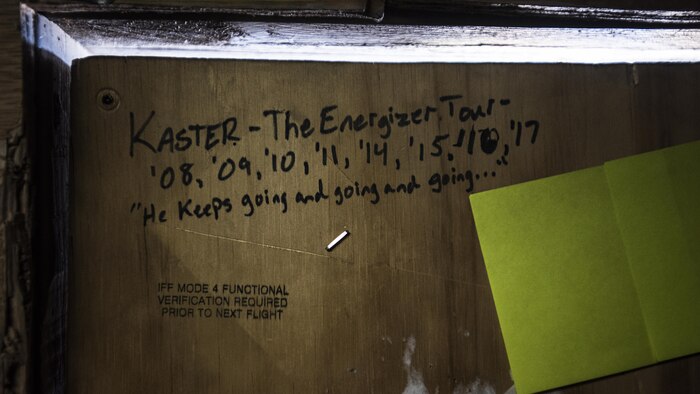 KASTER - The Energizer Tour -
'08, '09, '10, '11, '14, '15, '16, '17
"He Keeps going and going and going..."
IFF MODE 4 FUNCTIONAL
VERIFICATION REQUIRED
PRIOR TO NEXT FLIGHT